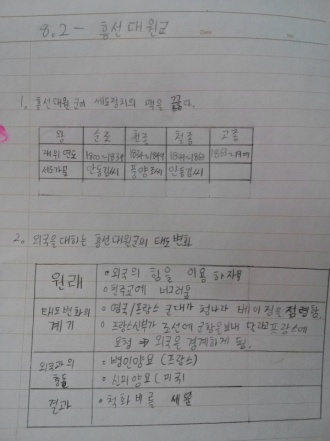 8.2 - 흥선대원군
1. 흥선대원군이 세도정치의 맥을 끊다.
왕 순조 헌종 철종 고종
재위 연도 1800~1834 1834~1849 1849~1863 1863~1907
세도가문 안동김씨 풍양조씨 안동김씨
2. 외국을 대하는 흥선대원군의 태도변화
원래
• 외국의 힘을 이용하자
• 천주교에 너그러움
태도변화의 계기
• 영국/프랑스 군대가 청나라 베이징을 점령함
• 프랑스신부가 조선에 군함을 보내 달라고 프랑스에
요청 → 외국을 경계하게 됨.
외국과의 충돌
• 병인양요 (프랑스)
• 신미양요 (미국)
결과
• 척화비를 세움